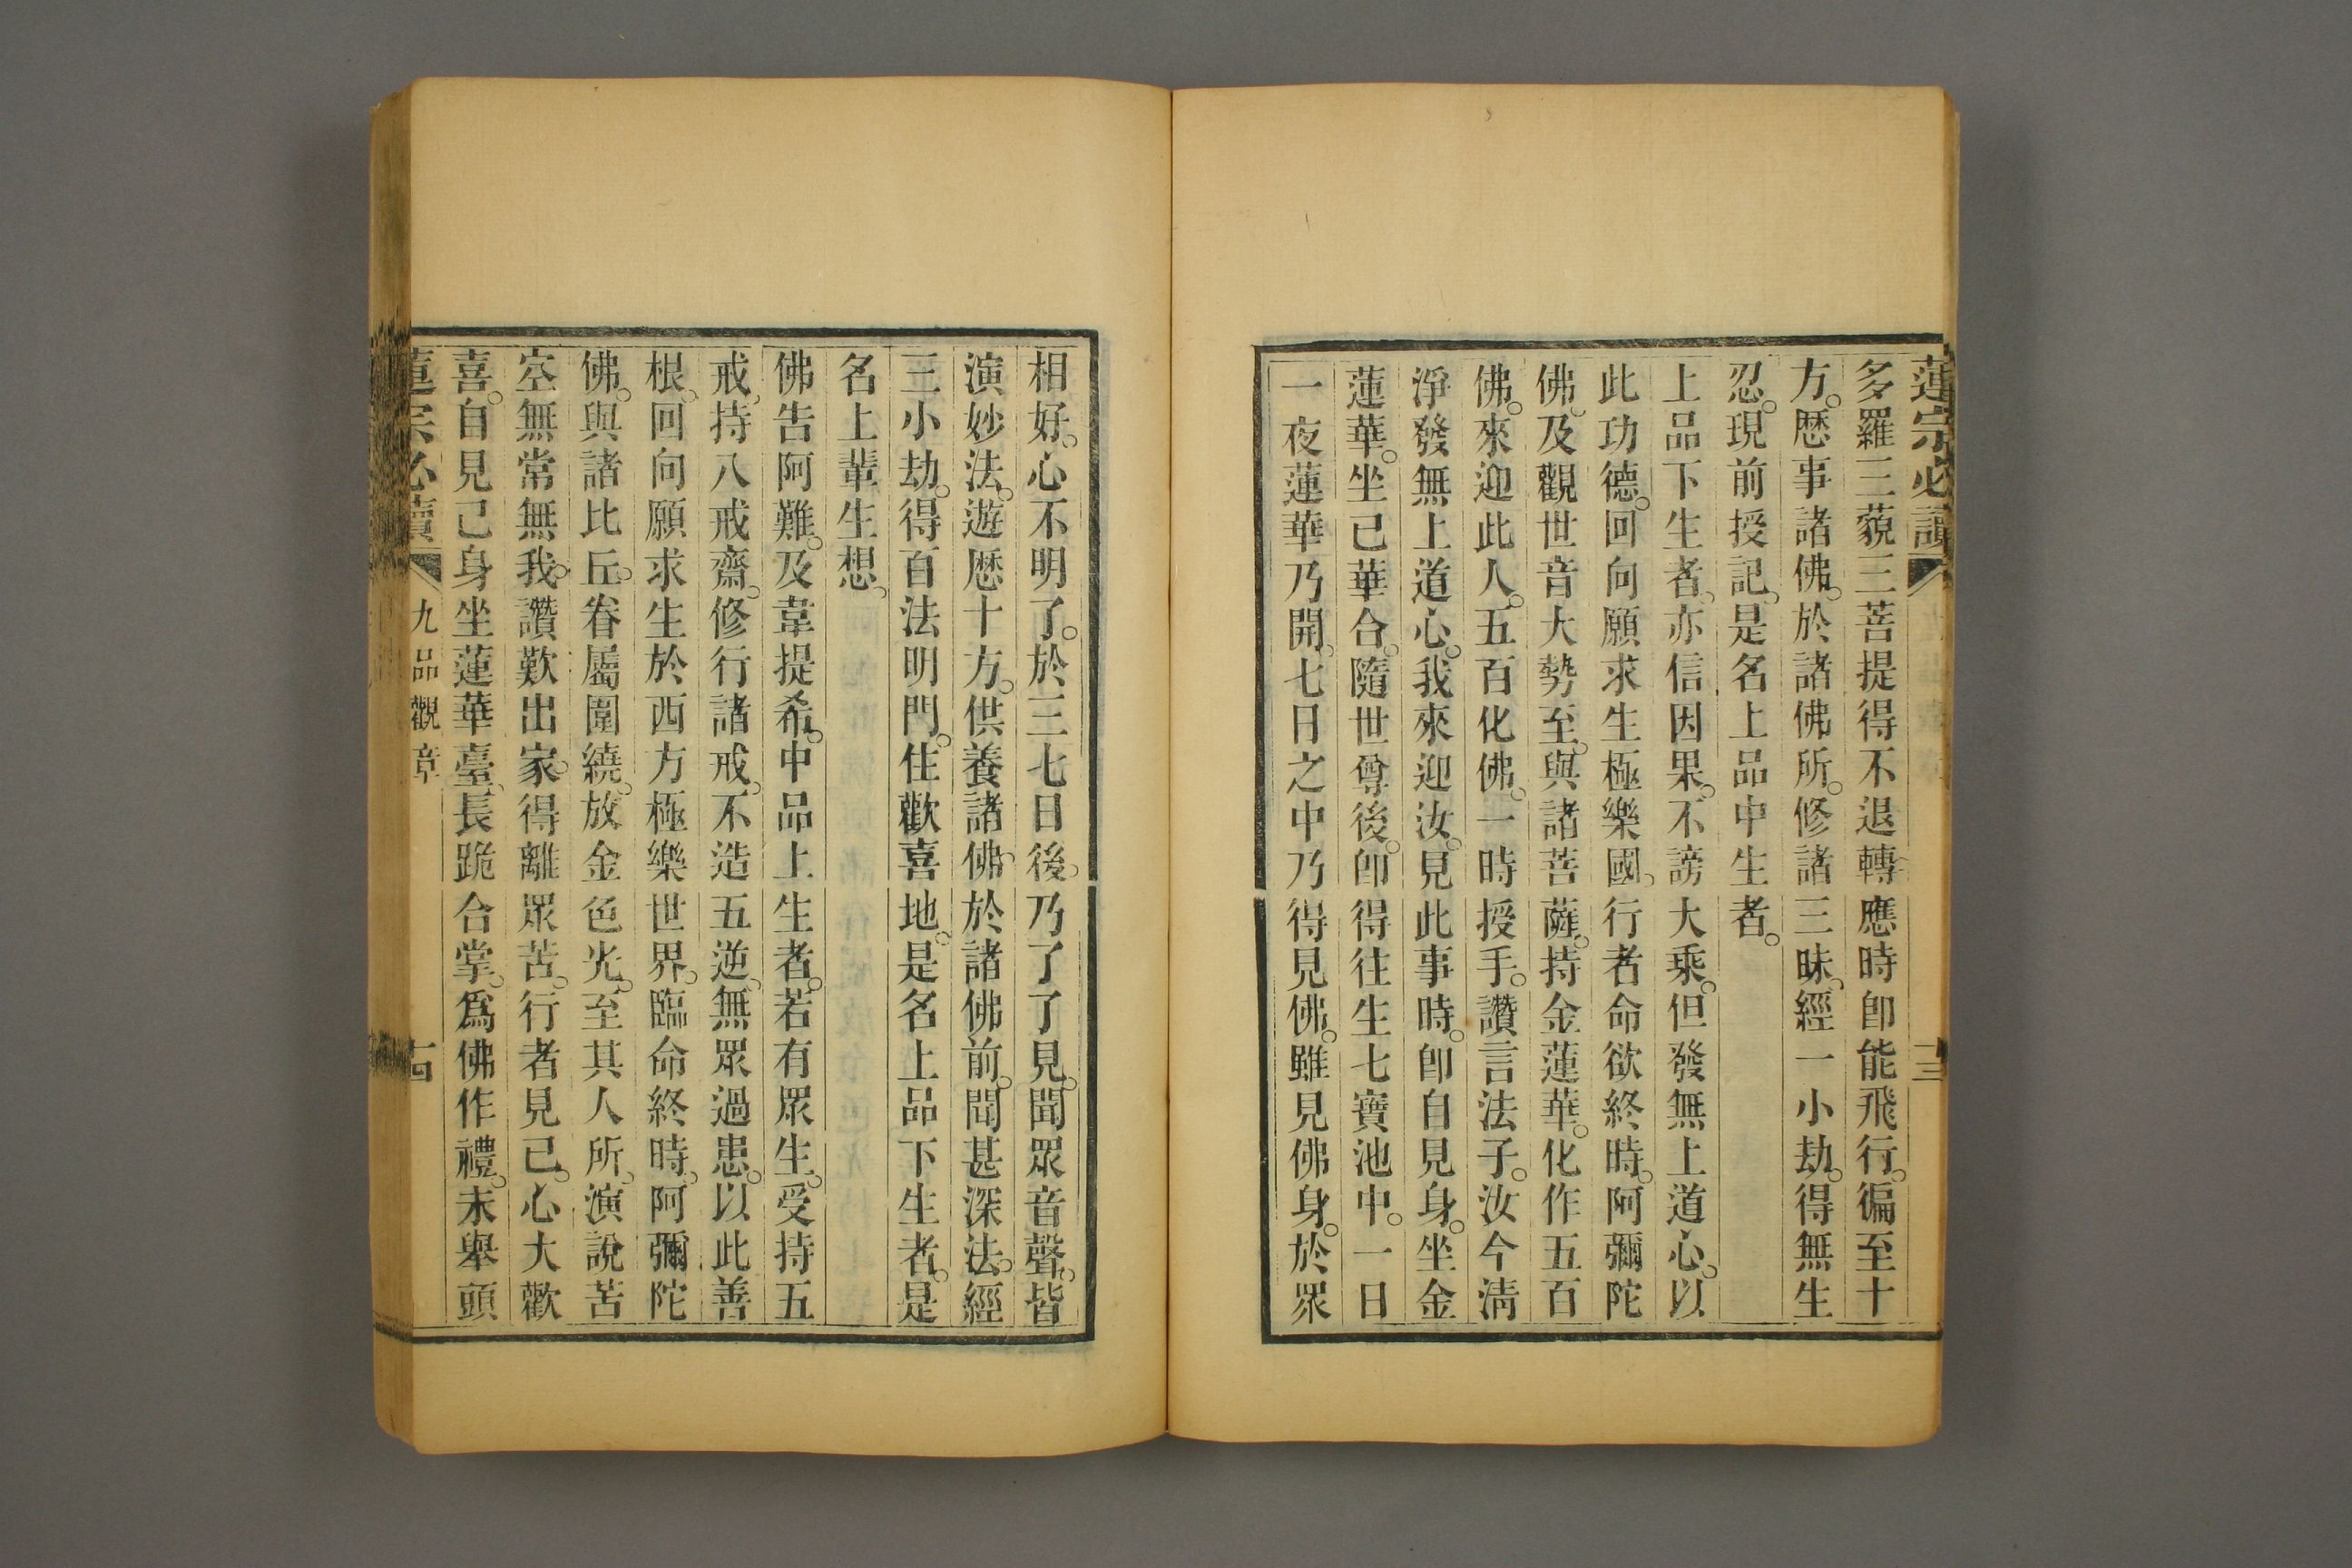 蓮宗必讀
十三
多羅三藐三菩提得不退轉應時卽能飛行。徧至十
方。歷事諸佛。於諸佛所。修諸三昧。經一小劫。得無生
忍。現前授記。是名上品中生者。
上品下生者。亦信因果。不謗大乘。但發無上道心。以
此功德。回向願求生極樂國。行者命欲終時。阿彌陀
佛。及觀世音大勢至。與諸菩薩。持金蓮華。化作五百
佛。來迎此人。五百化佛。一時授手。讚言法子。汝今淸
淨發無上道心。我來迎汝。見此事時。卽自見身。坐金
蓮華。坐已華合。隨世尊後。卽得往生七寶池中。一日
一夜蓮華乃開。七日之中乃得見佛。雖見佛身。於眾
相好。心不明了。於三七日後。乃了了見。聞眾音聲。皆
演妙法。遊歷十方。供養諸佛。於諸佛前。聞甚深法。經
三小劫。得百法明門。住歡喜地。是名上品下生者。是
名上輩生想。
佛告阿難。及韋提希。中品上生者。若有眾生。受持五
戒。持八戒齋。修行諸戒。不造五逆。無眾過患。以此善
根。回向願求生於西方極樂世界。臨命終時。阿彌陀
佛。與諸比丘。眷屬圍繞。放金色光。至其人所。演說苦
空無常無我。讚歎出家。得離眾苦。行者見已。心大歡
喜。自見己身坐蓮華臺。長跪合掌。爲佛作禮。未舉頭
蓮宗必讀
九品觀章
十四